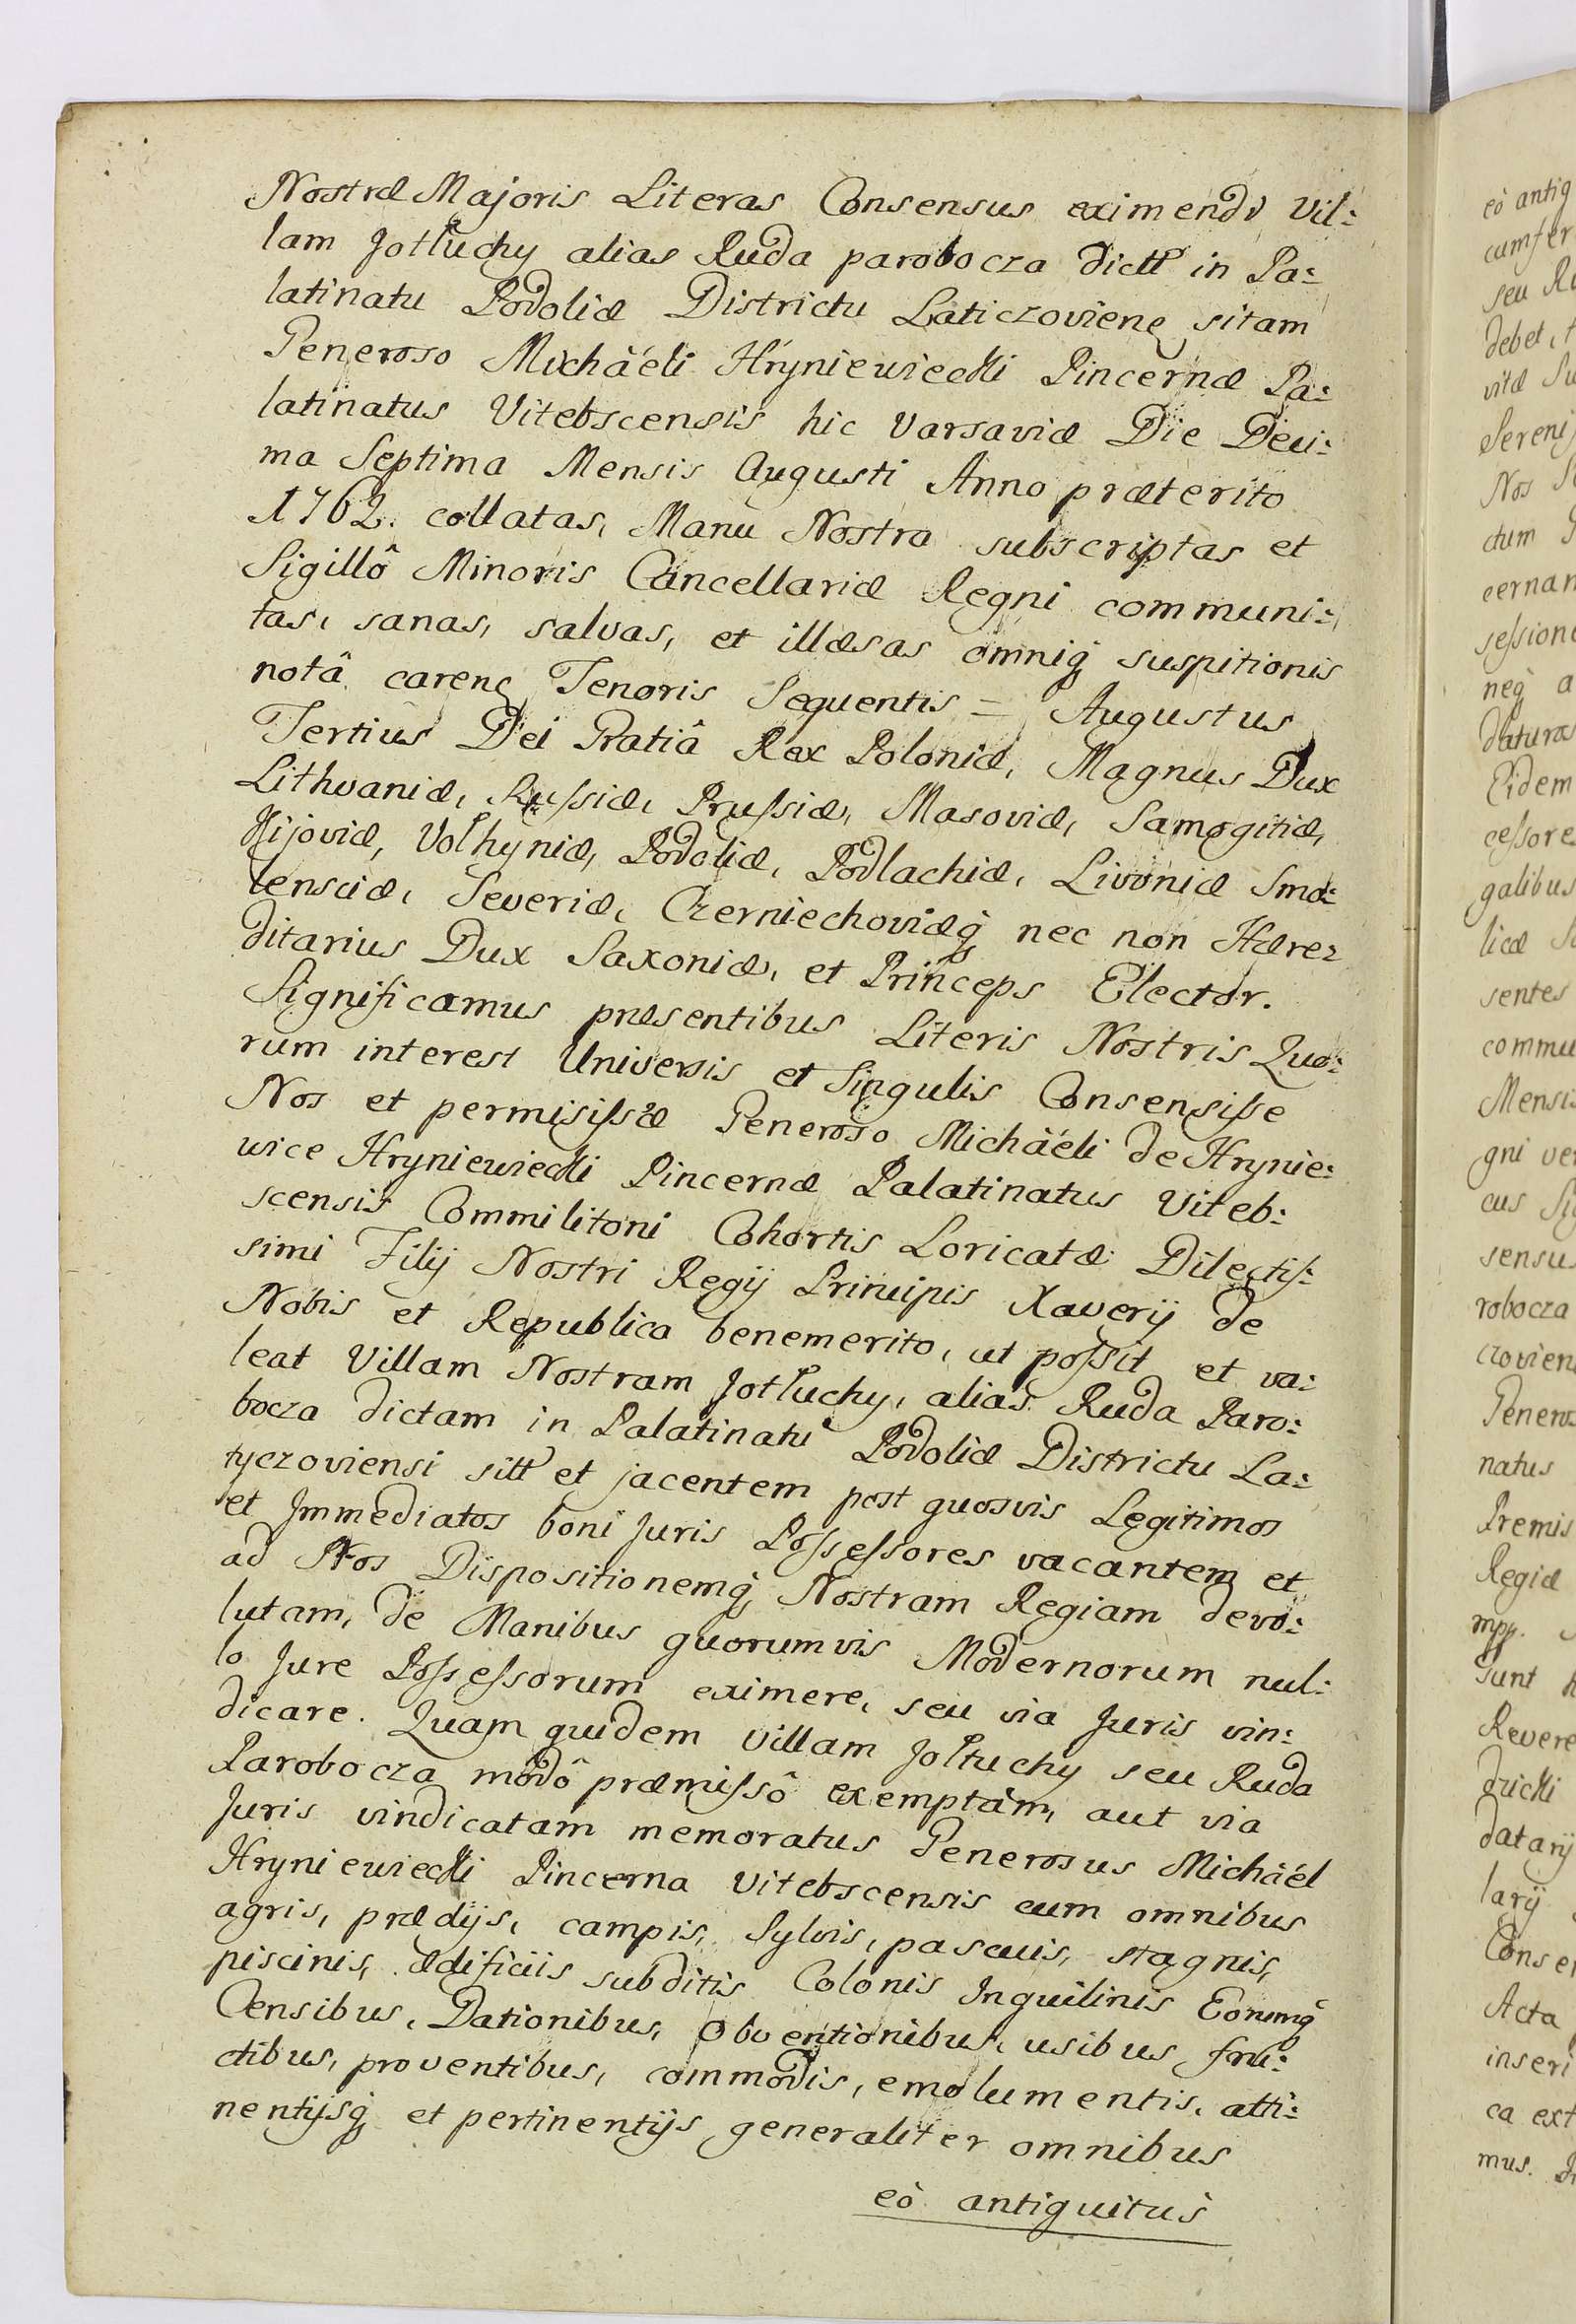 Nostræ Majoris Literas Consensus eximendi Vil:
lam Jołtuchy alias Ruda parobocza dictt in Pa:
latinatu Podoliæ Districtu Laticzovienę sitam
Generoso Michäeli Hryniewiecki Pincernæ Pa:
latinatus Vitebscensis hic Varsaviæ Die Deci:
ma Septima Mensis Augusti Anno præterito
1762. collatas, Manu Nostra subscriptas et
Sigillô Minoris Cancellariæ Regni communi:
tas, sanas, salvas, et illæsas omniq́ suspitionis
notâ carenę Tenoris Sequentis = Augustus
Tertius Dei Gratiâ Rex Poloniæ, Magnus Dux
Lithvaniæ, Russiæ, Prussiæ, Masoviæ, Samogitiæ,
Kijoviæ, Volhyniæ, Podoliæ, Podlachiæ, Livoniæ Smo:
lensciæ, Severiæ, Czerniechoviæq́ nec non Hære:
ditarius Dux Saxoniæ, et Princeps Elector.
Significamus præsentibus Literis Nostris Quo:
rum interest Universis et Singulis Consensisse
Nos et permisissæ Generoso Michäeli de Hrynie:
wice Hryniewiecki Pincernæ Palatinatus Viteb:
scensis Commilitoni Cohortis Loricatæ Dilectis:
simi Filij Nostri Regij Principis Xaverij de
Nobis et Republica benemerito, ut possit et va:
leat Villam Nostram Jołtuchy, alias Ruda Paro:
bocza dictam in Palatinatu Podoliæ Districtu La:
tyczoviensi sitt et jacentem post quosvis Legitimos
et Immediatos boni Juris Possessores vacantem et
ad Nos Dispositionemq́ Nostram Regiam devo:
lutam, de Manibus quorumvis Modernorum nul:
lo Jure Possessorum eximere, seu via Juris vin:
dicare. Quam quidem Villam Jołtuchy seu Ruda
Parobocza modô præmissô exemptam, aut via
Juris vindicatam memoratus Generosus Michäel
Hryniewiecki Pincerna Vitebscensis cum omnibus
agris, prædijs, campis, Sylvis, pascuis, stagnis,
piscinis, ædificiis subditis Colonis Inquilinis Eorumq́
Censibus, Dationibus, obventionibus, usibus fru:
ctibus, proventibus, commodis, emolumentis, atti:
nentijsq́ et pertinentijs generaliter omnibus
eò antiquitus
eò antiq
cumfer
seu Ru
debet,
vitæ Su
Sereni
Nos
ctum
cernan
sessione
neq́ a
datura
Eidem
cessore
galibus
licæ
sentes
commu
Mensis
gni ve
cus Si
sensu
robocza
czovien
Genero
natus
Premis
Regiæ
mpp.
Sunt
Revere
datarij
larij
Conse
Acta
inseri
ca ext
mus.